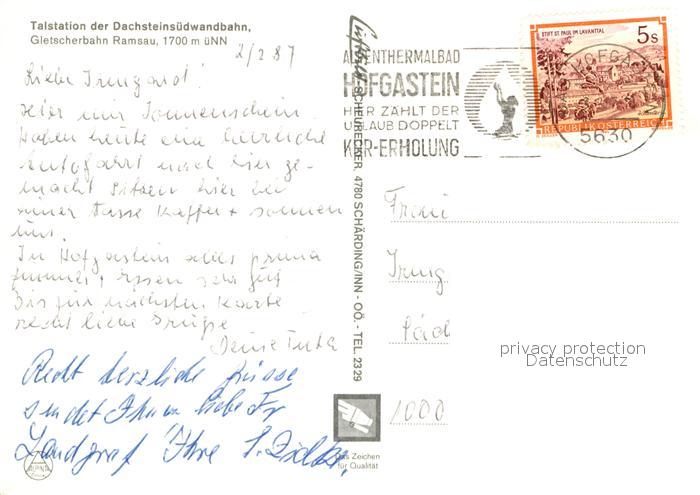 Talstation der Dachsteinsüdwandbahn,
Gletscherbahn Ramsau, 1700 m üNN
2/2 87
Liebe Irmgard!
hier mit Sonnenschein.
Haben heute eine herrliche
Autofahrt nach hier ge-
macht sitzen hier bei
einer Tasse Kaffee + sonnen
uns.
In Hofgastein alles prima
Zimmer, Essen sehr gut
Bis zur nächsten Karte
recht liebe Grüße
Deine
Recht herzliche Grüsse
sendet Ihnen liebe Fr
Landgraf Ihre
SCHEURECKER, 4780 SCHÄRDING/INN - OÖ. - TEL. 2329
ALPENTHERMALBAD
HOFGASTEIN
HIER ZÄHLT DER
URLAUB DOPPELT
KUR-ERHOLUNG
STIFT ST. PAUL IM LAVANTTAL
5s
REPUBLIK ÖSTERREICH
5630
Frau
Irmg
1000
privacy protection
Datenschutz
Das Zeichen
für Qualität